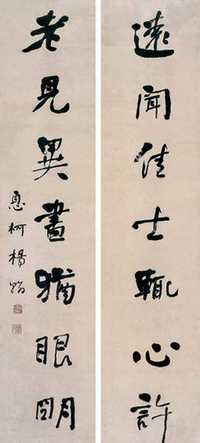 遠聞佳士輒心許
老見異書猶眼明
息柯楊翰